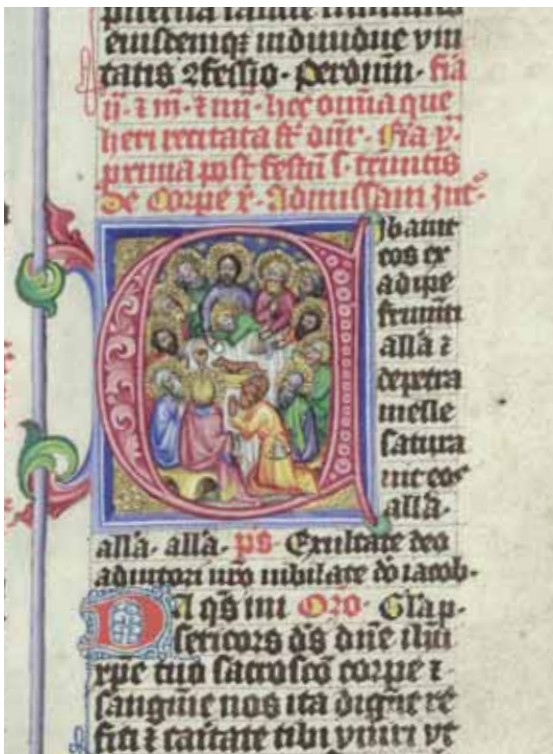 eiusdemq; indiuidue vni
tatis ɔfessio. per dnm. fia
ii. ⁊ iii. ⁊ iiii. hec omia que
heri recitata st dnr. fia v.
prima post festu s. trinitatis
de Corpe x. Ad missam
Cibauit
eos ex
adipe
frumti
alla ⁊
de petra
melle
satura
uit eos
alla.
alla. alla. ps Exultate deo
adiutori nro iubilate do iacob.
Oro.
sericors ds
tuo sacrosco corpe ⁊
sanguine nos ita digne re
fici ⁊ caritate tibi vniri vt